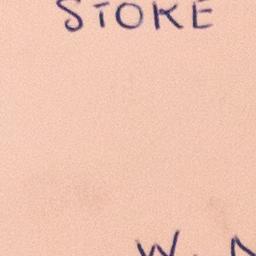 STOKE
W.